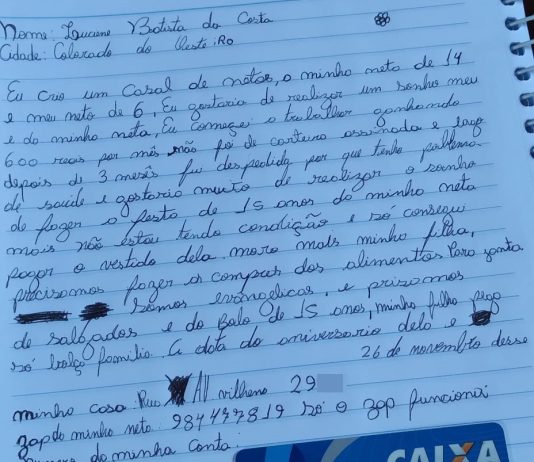 Nome: Luciene Batista da Costa
Cidade: Colorado do Oeste: RO
Eu crio um casal de netos, a minha neta de 14
e meu neto de 6, Eu gostaria de realizar um sonho meu
e do minha neta, Eu comesei a trabalhar ganhando
600 reais por mês não foi de carteira assinada e logo
depois de 3 meses fui despedida por que tenho poblema
de saúde e gostario muito de realizar o sonho
de fazer a festa de 15 anos do minha neta
mais não estou tendo condição e só consegui
pagar o vestido dela. moro mals minha filha,
precisamos fazer as compras dos alimentos Para janta
somos evangelicas, e prizamos
de salgados e do Bolo de 15 anos, minha filha pago
só família. A data do aniversario dela e
26 de novembro desse
minha casa. Rua AV vilhena 29
zap do minha neta: 984479819 só o zap funciona
do minha conta:
CAIXA